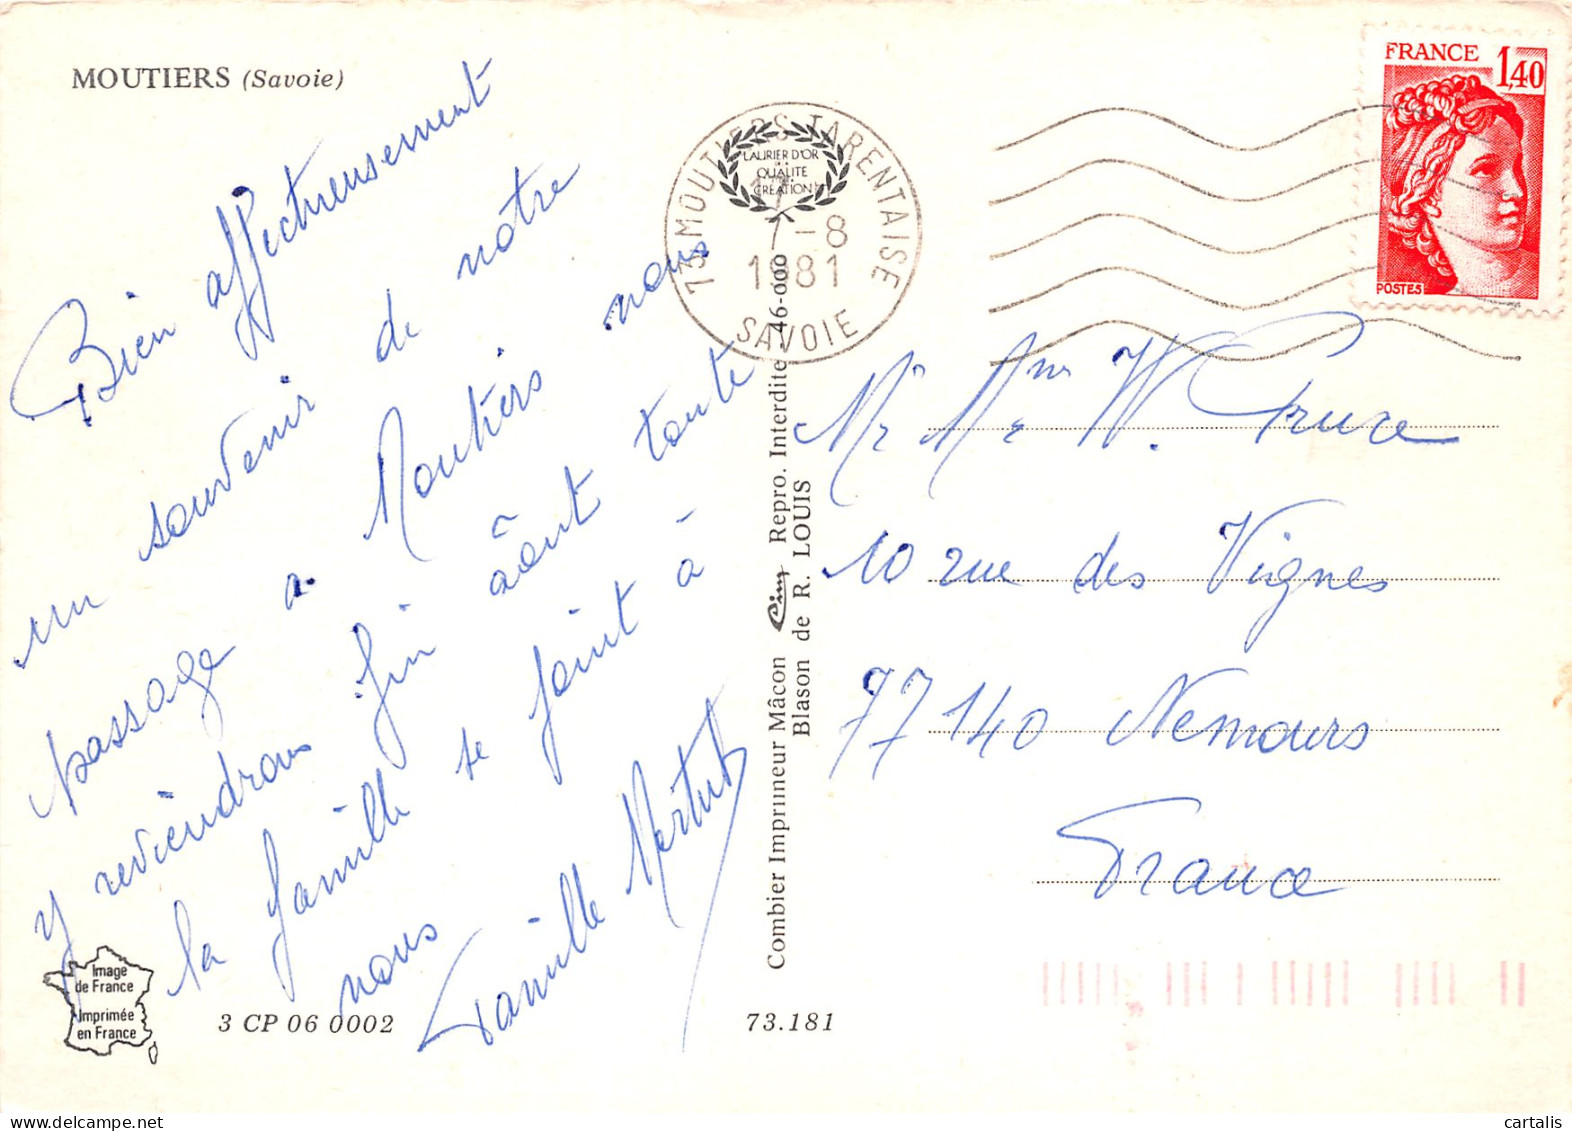 MOUTIERS (Savoie)
Bien affectueusement
un souvenir de notre
passage a Moutiers nous
y reviendrons fin août toute
la famille se joint à
nous
Famille
Image
de France
Imprimée
en France
3 CP 06 0002
73.181
Combier Imprimeur Mâcon Cim Repro. Interdite 46-000
Blason de R. LOUIS
73 MOUTIERS TARENTAISE
LAURIER D'OR
QUALITE
CREATION
7-8
1981
SAVOIE
FRANCE 1,40
POSTES
Mr Mme W.
10 rue des Vignes
77140 Nemours
France
cartalis